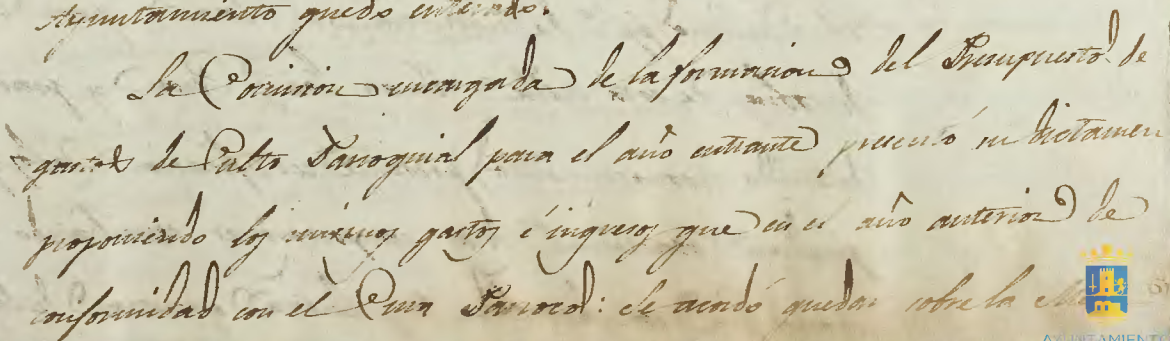 Ayuntamiento quedo enterado.
La Comision encargada de la formacion del Presupuesto de
gastos de Culto Parroquial para el año entrante presentó su dictamen
proponiendo los mismos gastos é ingresos que en el año anterior de
conformidad con el Cura Parroco: se acordó quedar sobre la Mesa
AYUNTAMIENTO